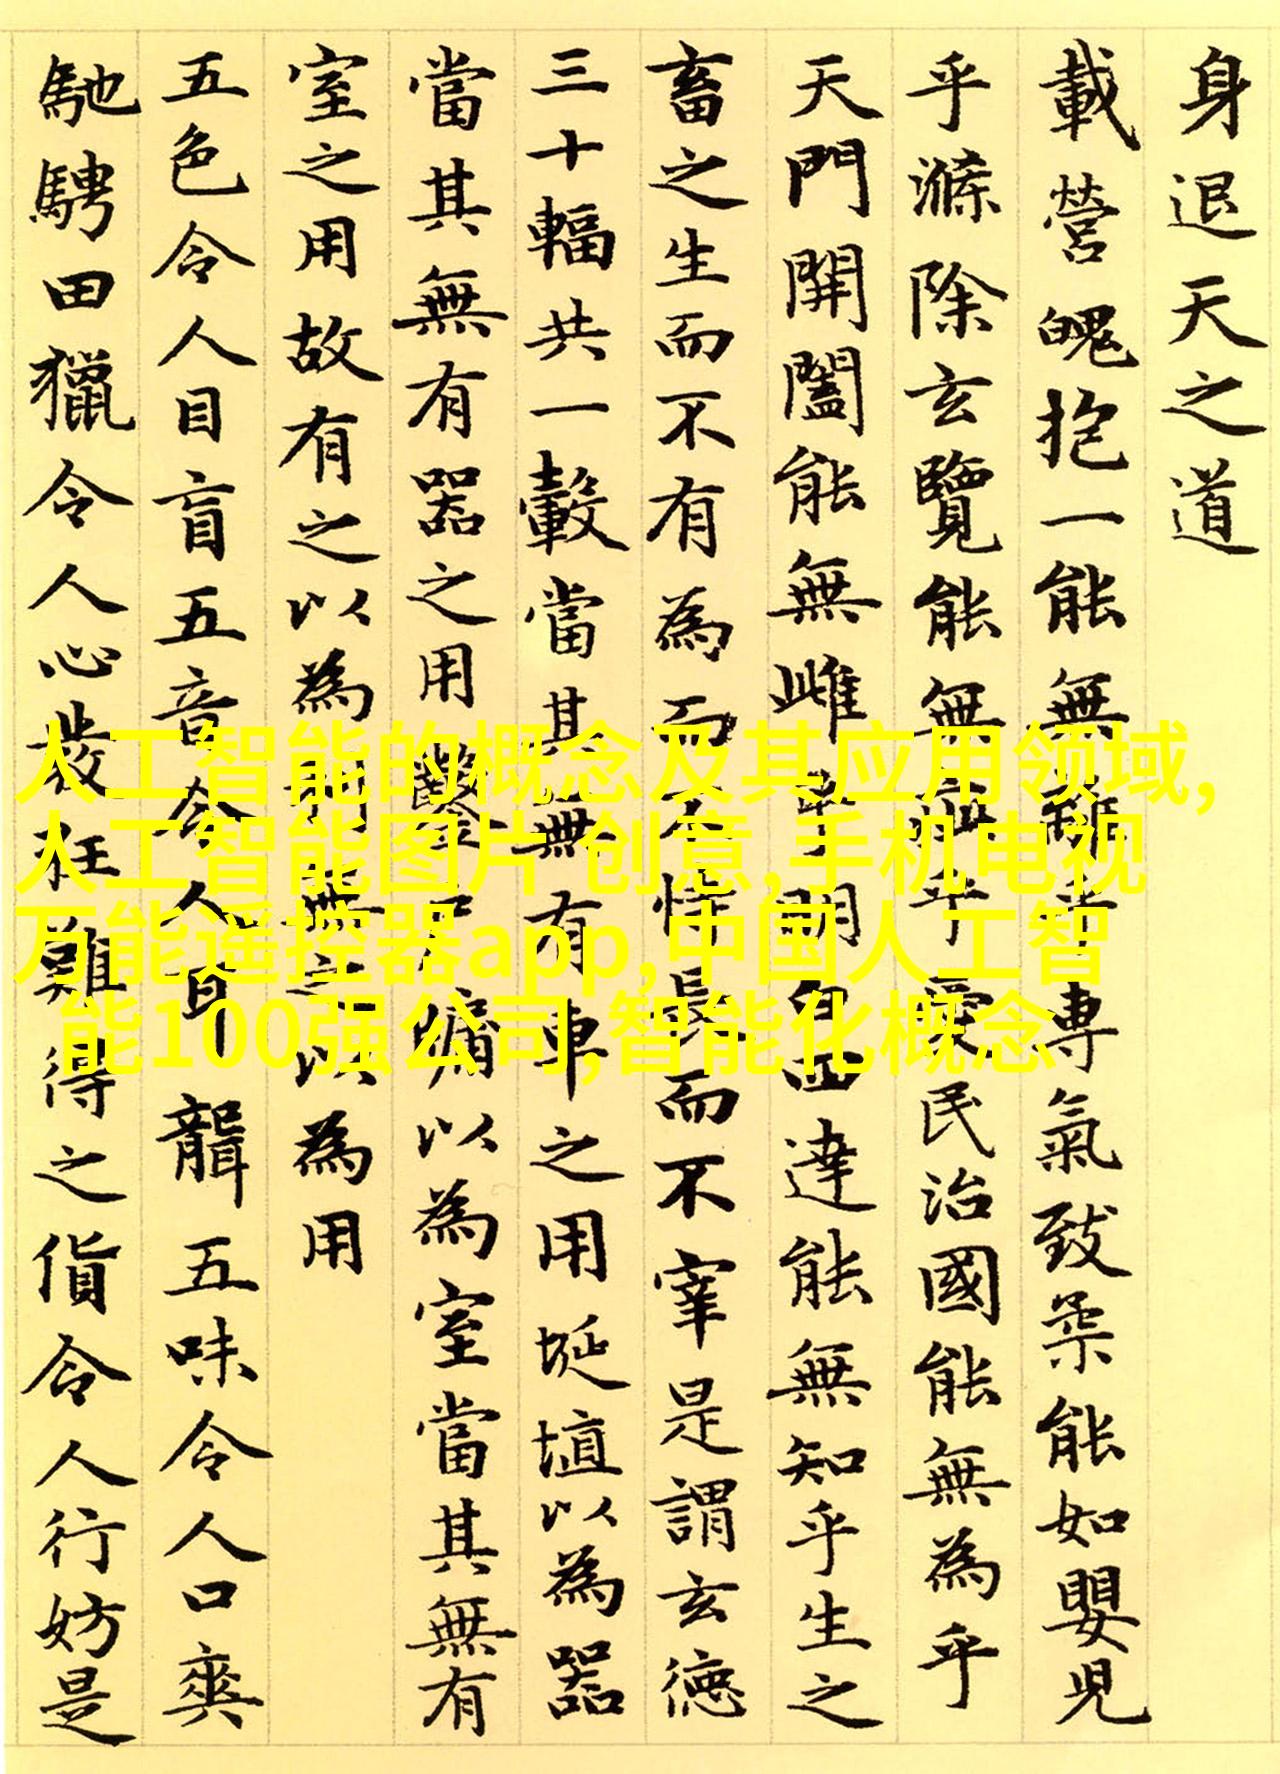 身退天之道
載營魄抱一能無離乎專氣致柔能如嬰兒
乎滌除玄覽能無疵乎愛民治國能無為乎
天門開闔能無雌乎明白四達能無知乎生之
畜之生而不有為而不恃長而不宰是謂玄德
三十輻共一轂當其無有車之用埏埴以為器
當其無有器之用鑿戶牖以為室當其無有
室之用故有之以為利無之以為用
五色令人目盲五音令人耳聾五味令人口爽
馳騁田獵令人心發狂難得之貨令人行妨是
人工智能的概念及其应用领域,
人工智能图片创意,手机电视
万能遥控器app,中国人工智
能100强公司,智能化概念